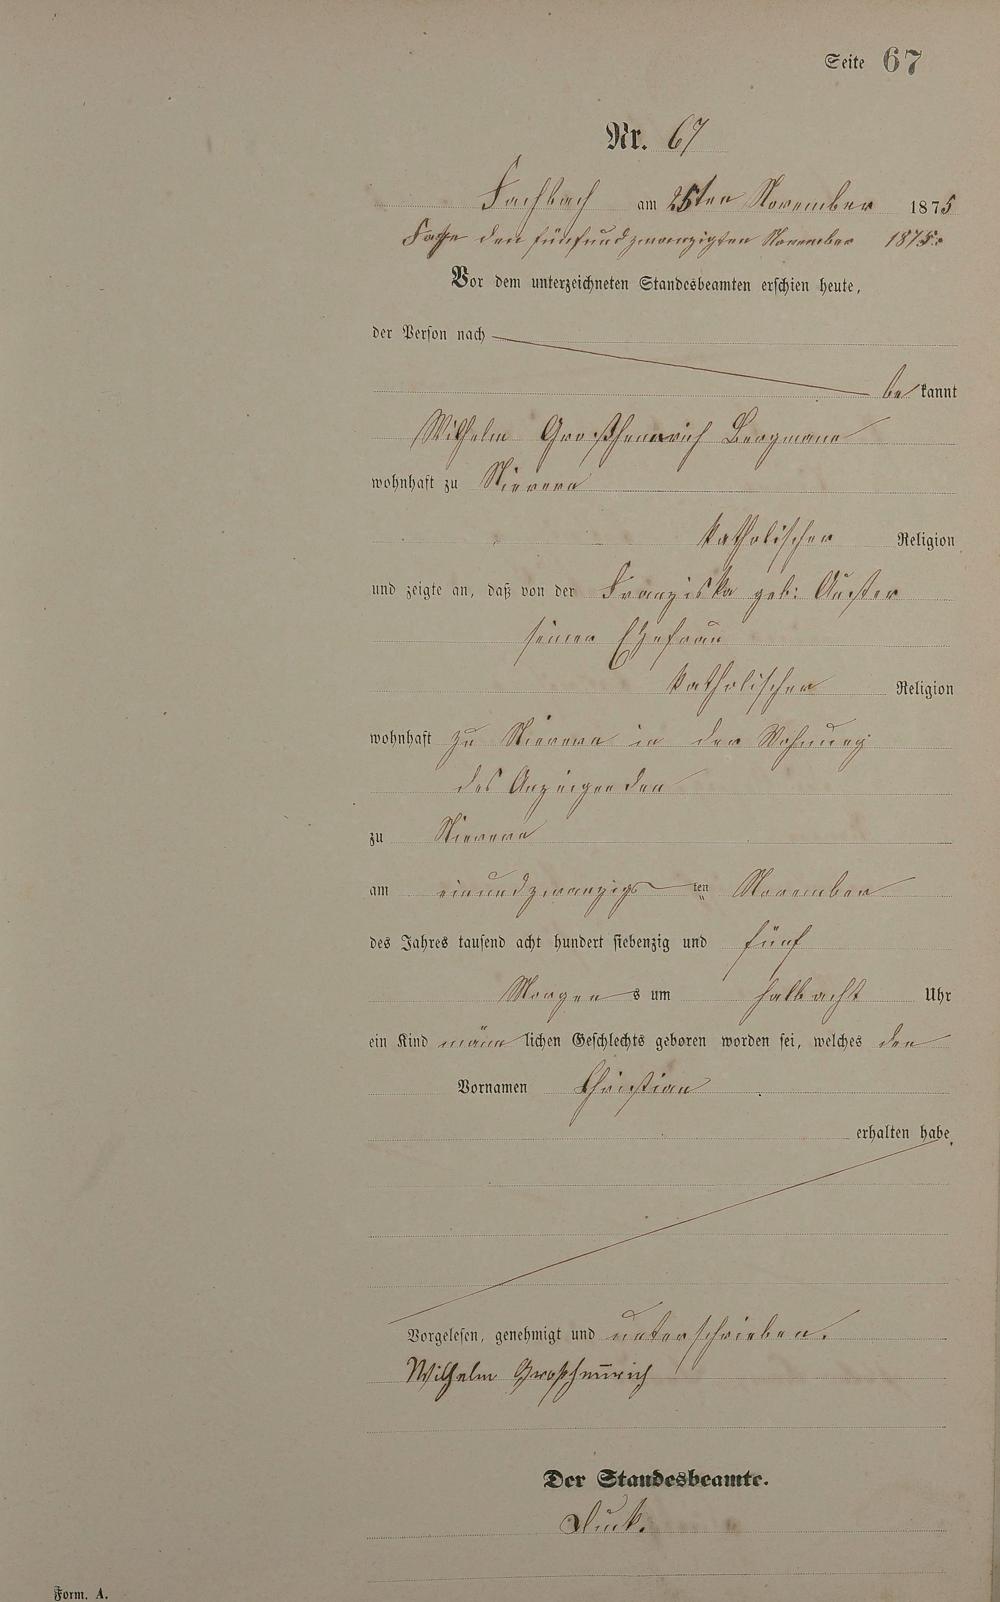 Seite 67
Nr. 67
Fachbach am 25ten November 1875
den fünfundzwanzigten November 1875.
Vor dem unterzeichneten Standesbeamten erschien heute,
der Person nach
be kannt
Wilhelm Großhennrich Bergmann
wohnhaft zu Nievern
katholischer Religion
und zeigte an, daß von der Franziska geb: Auster
seiner Ehefrau
katholischer Religion
wohnhaft zu Nievern in der Wohnung
des Anzeigenden
zu Nievern
am einundzwanzigs ten November
des Jahres tausend acht hundert siebenzig und fünf
Morgen s um halb acht Uhr
ein Kind männ lichen Geschlechts geboren worden sei, welches den
Vornamen Christian
erhalten habe.
Vorgelesen, genehmigt und unterschrieben.
Wilhelm Großhenrich
Der Standesbeamte.
Form. A.